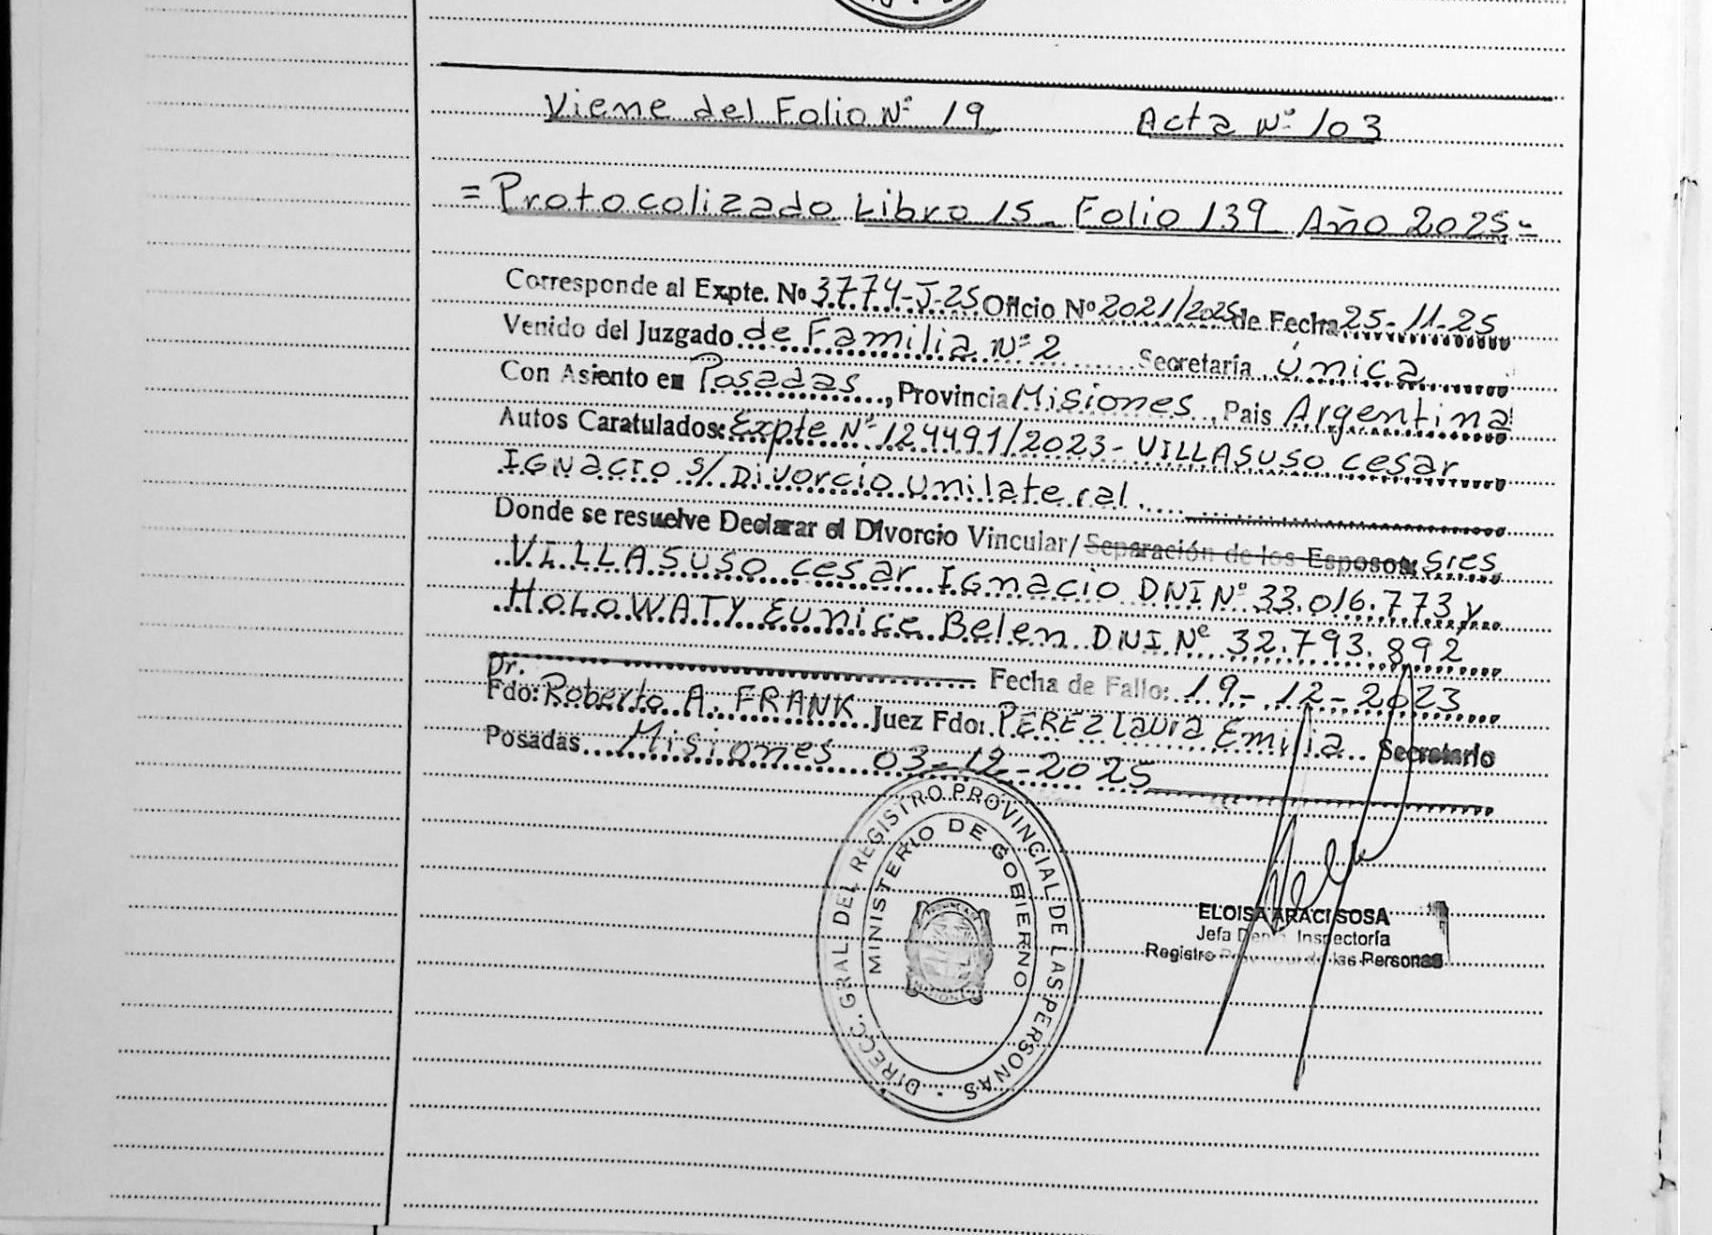 Viene del Folio Nº 19 Acta Nº 103
= Protocolizado Libro 15 Folio 139 Año 2025 =
Corresponde al Expte. Nº 3774-J-25 Oficio Nº 2021/2025 de Fecha 25-11-25
Venido del Juzgado de Familia Nº 2 Secretaría Única
Con Asiento en Posadas, Provincia Misiones, Pais Argentina
Autos Caratulados: Expte Nº 124491/2023 - VILLASUSO cesar
IGNacio s/ Divorcio unilateral.
Donde se resuelve Declarar el Divorcio Vincular/Separación de los Esposos: Sres
VILLASUSO cesar IGnacio DNI Nº 33.016.773 y
HOLOWATY Eunice Belen DNI Nº 32.793.892
Fecha de Fallo: 19-12-2023
Dr.
Fdo: Roberto A. FRANK Juez Fdo: PEREZ Laura Emilia Secretario
Posadas Misiones 03-12-2025
DIRECC. GRAL. DEL REGISTRO PROVINCIAL DE LAS PERSONAS
MINISTERIO DE GOBIERNO
ELOISA ARACI SOSA
Jefa Inspectoría
Registro de las Personas